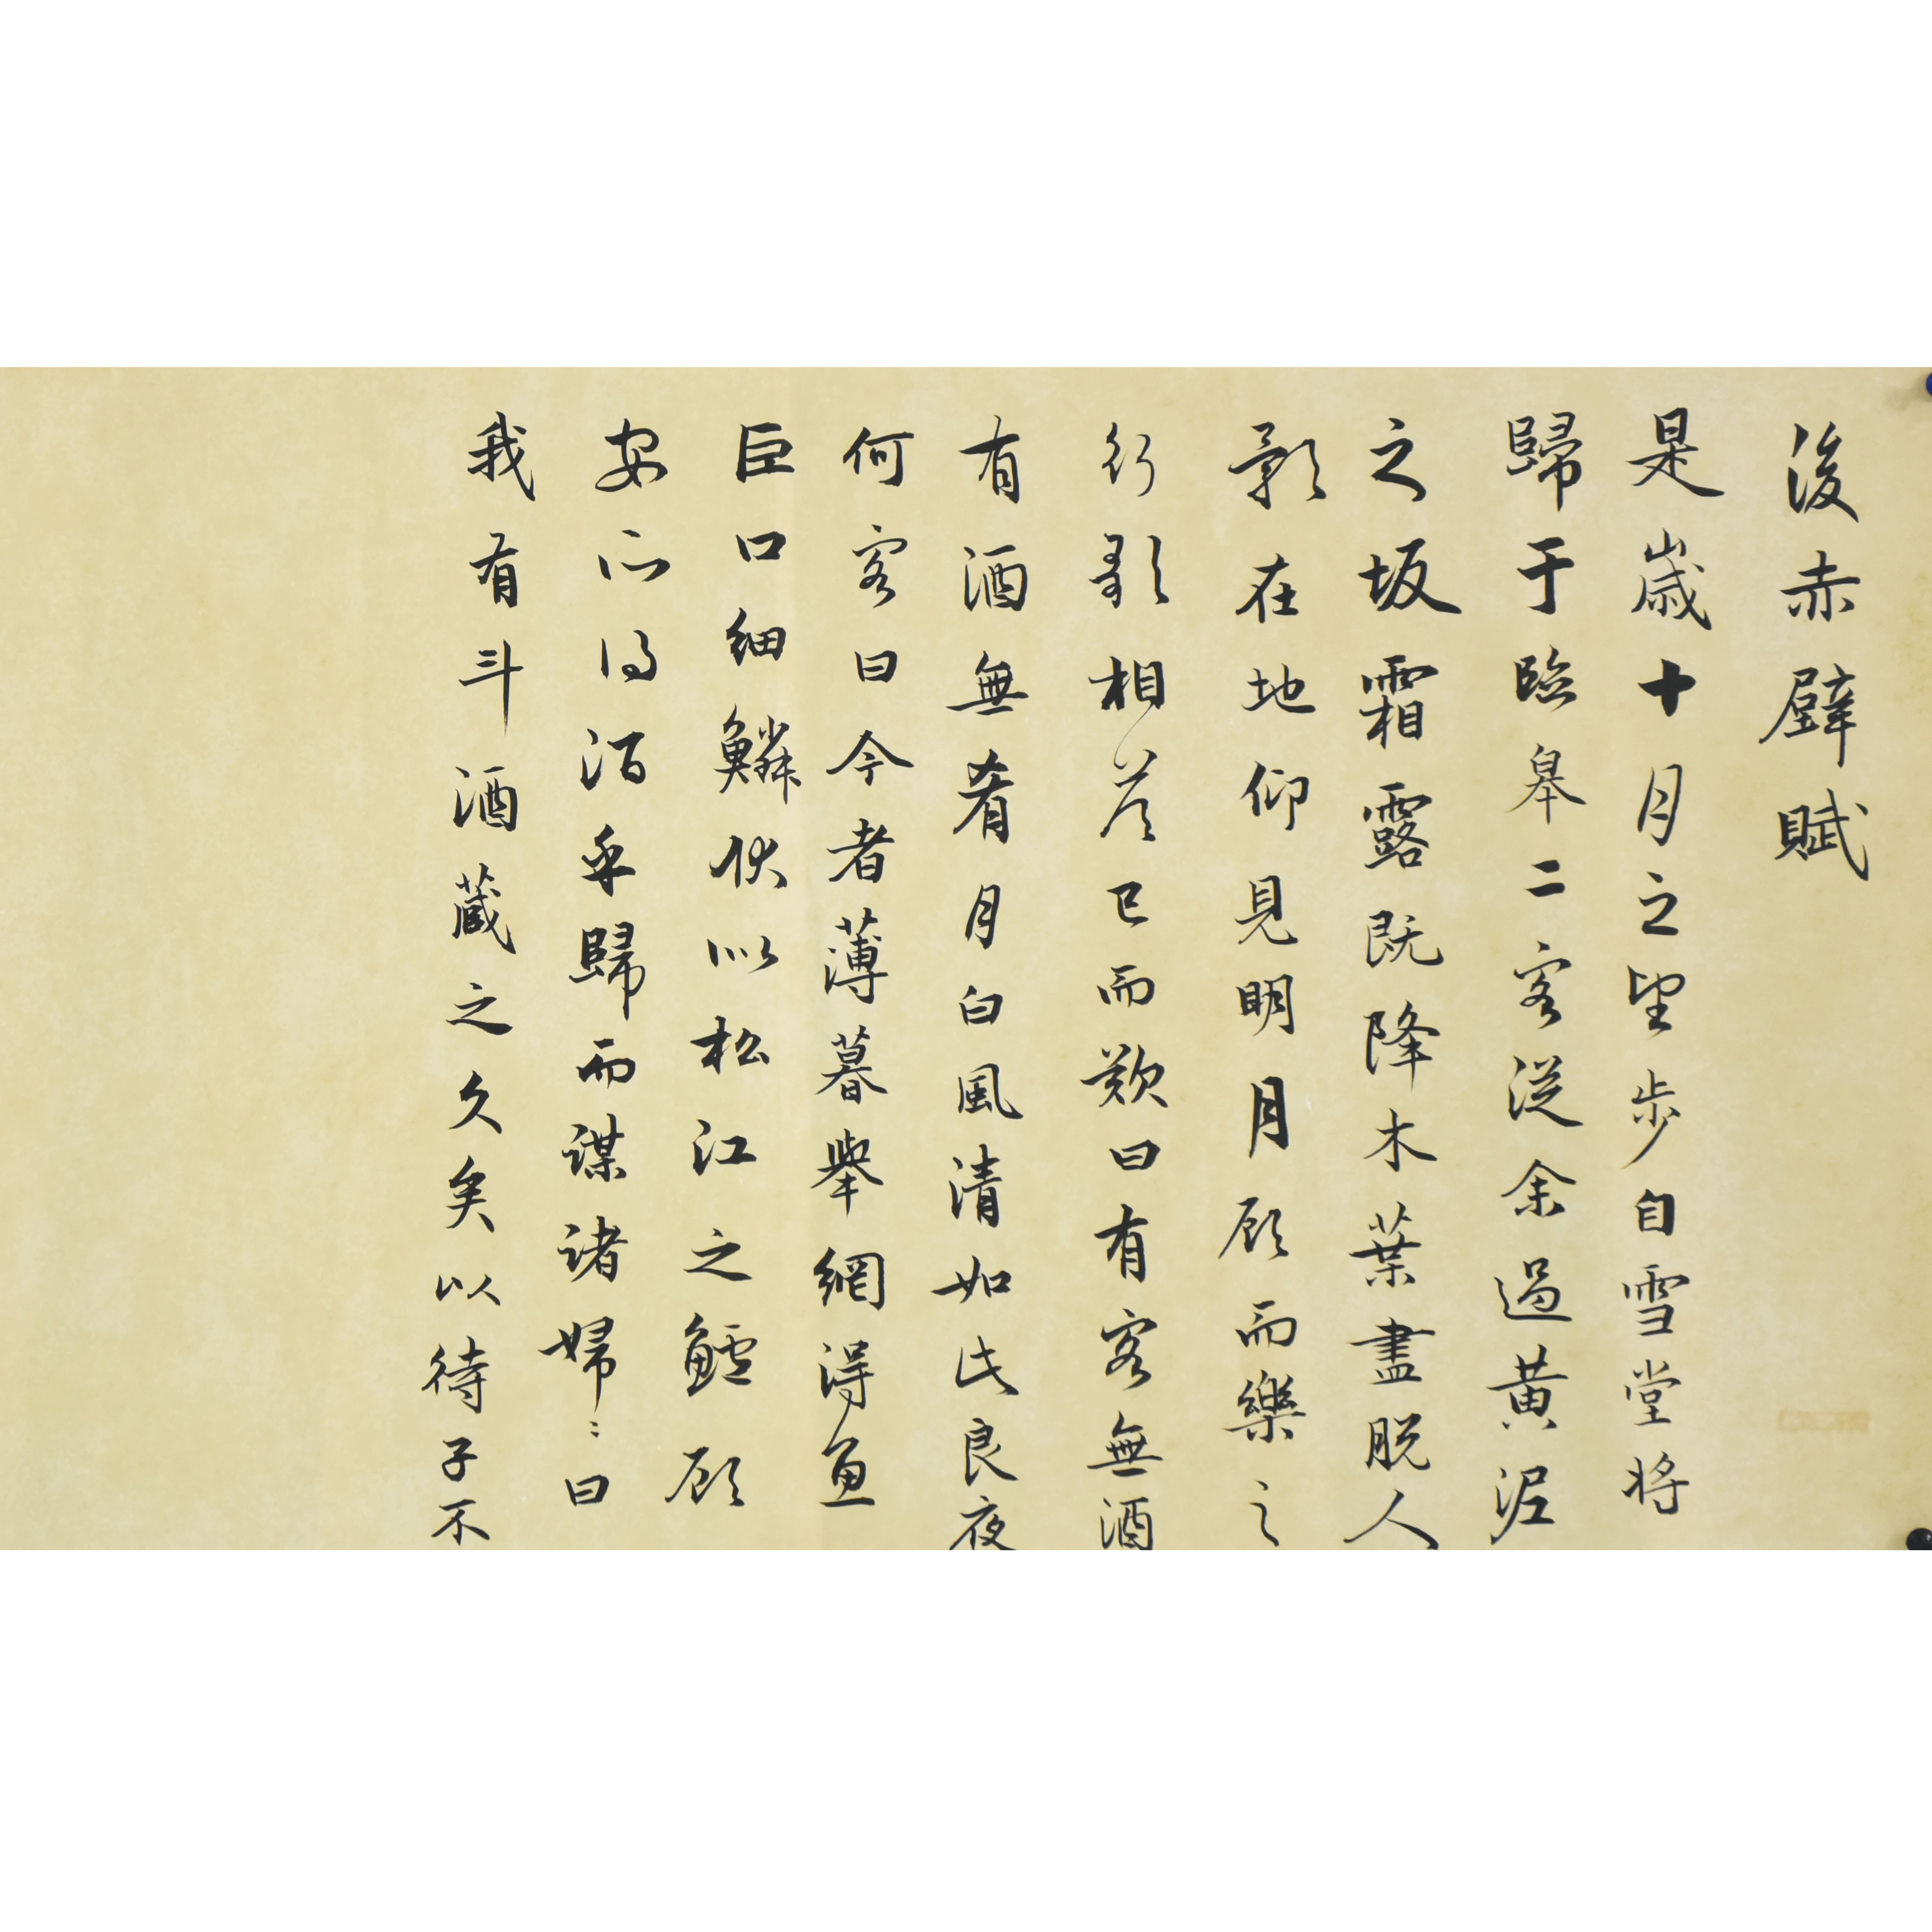 後赤壁賦
是歲十月之望步自雪堂將
歸于臨皋二客從余過黃泥
之坂霜露既降木葉盡脫人
影在地仰見明月顧而樂之
行歌相答已而歎曰有客無酒
有酒無肴月白風清如此良夜
何客曰今者薄暮舉網得魚
巨口細鱗狀似松江之鱸顧
安所得酒乎歸而謀諸婦〻曰
我有斗酒藏之久矣以待子不